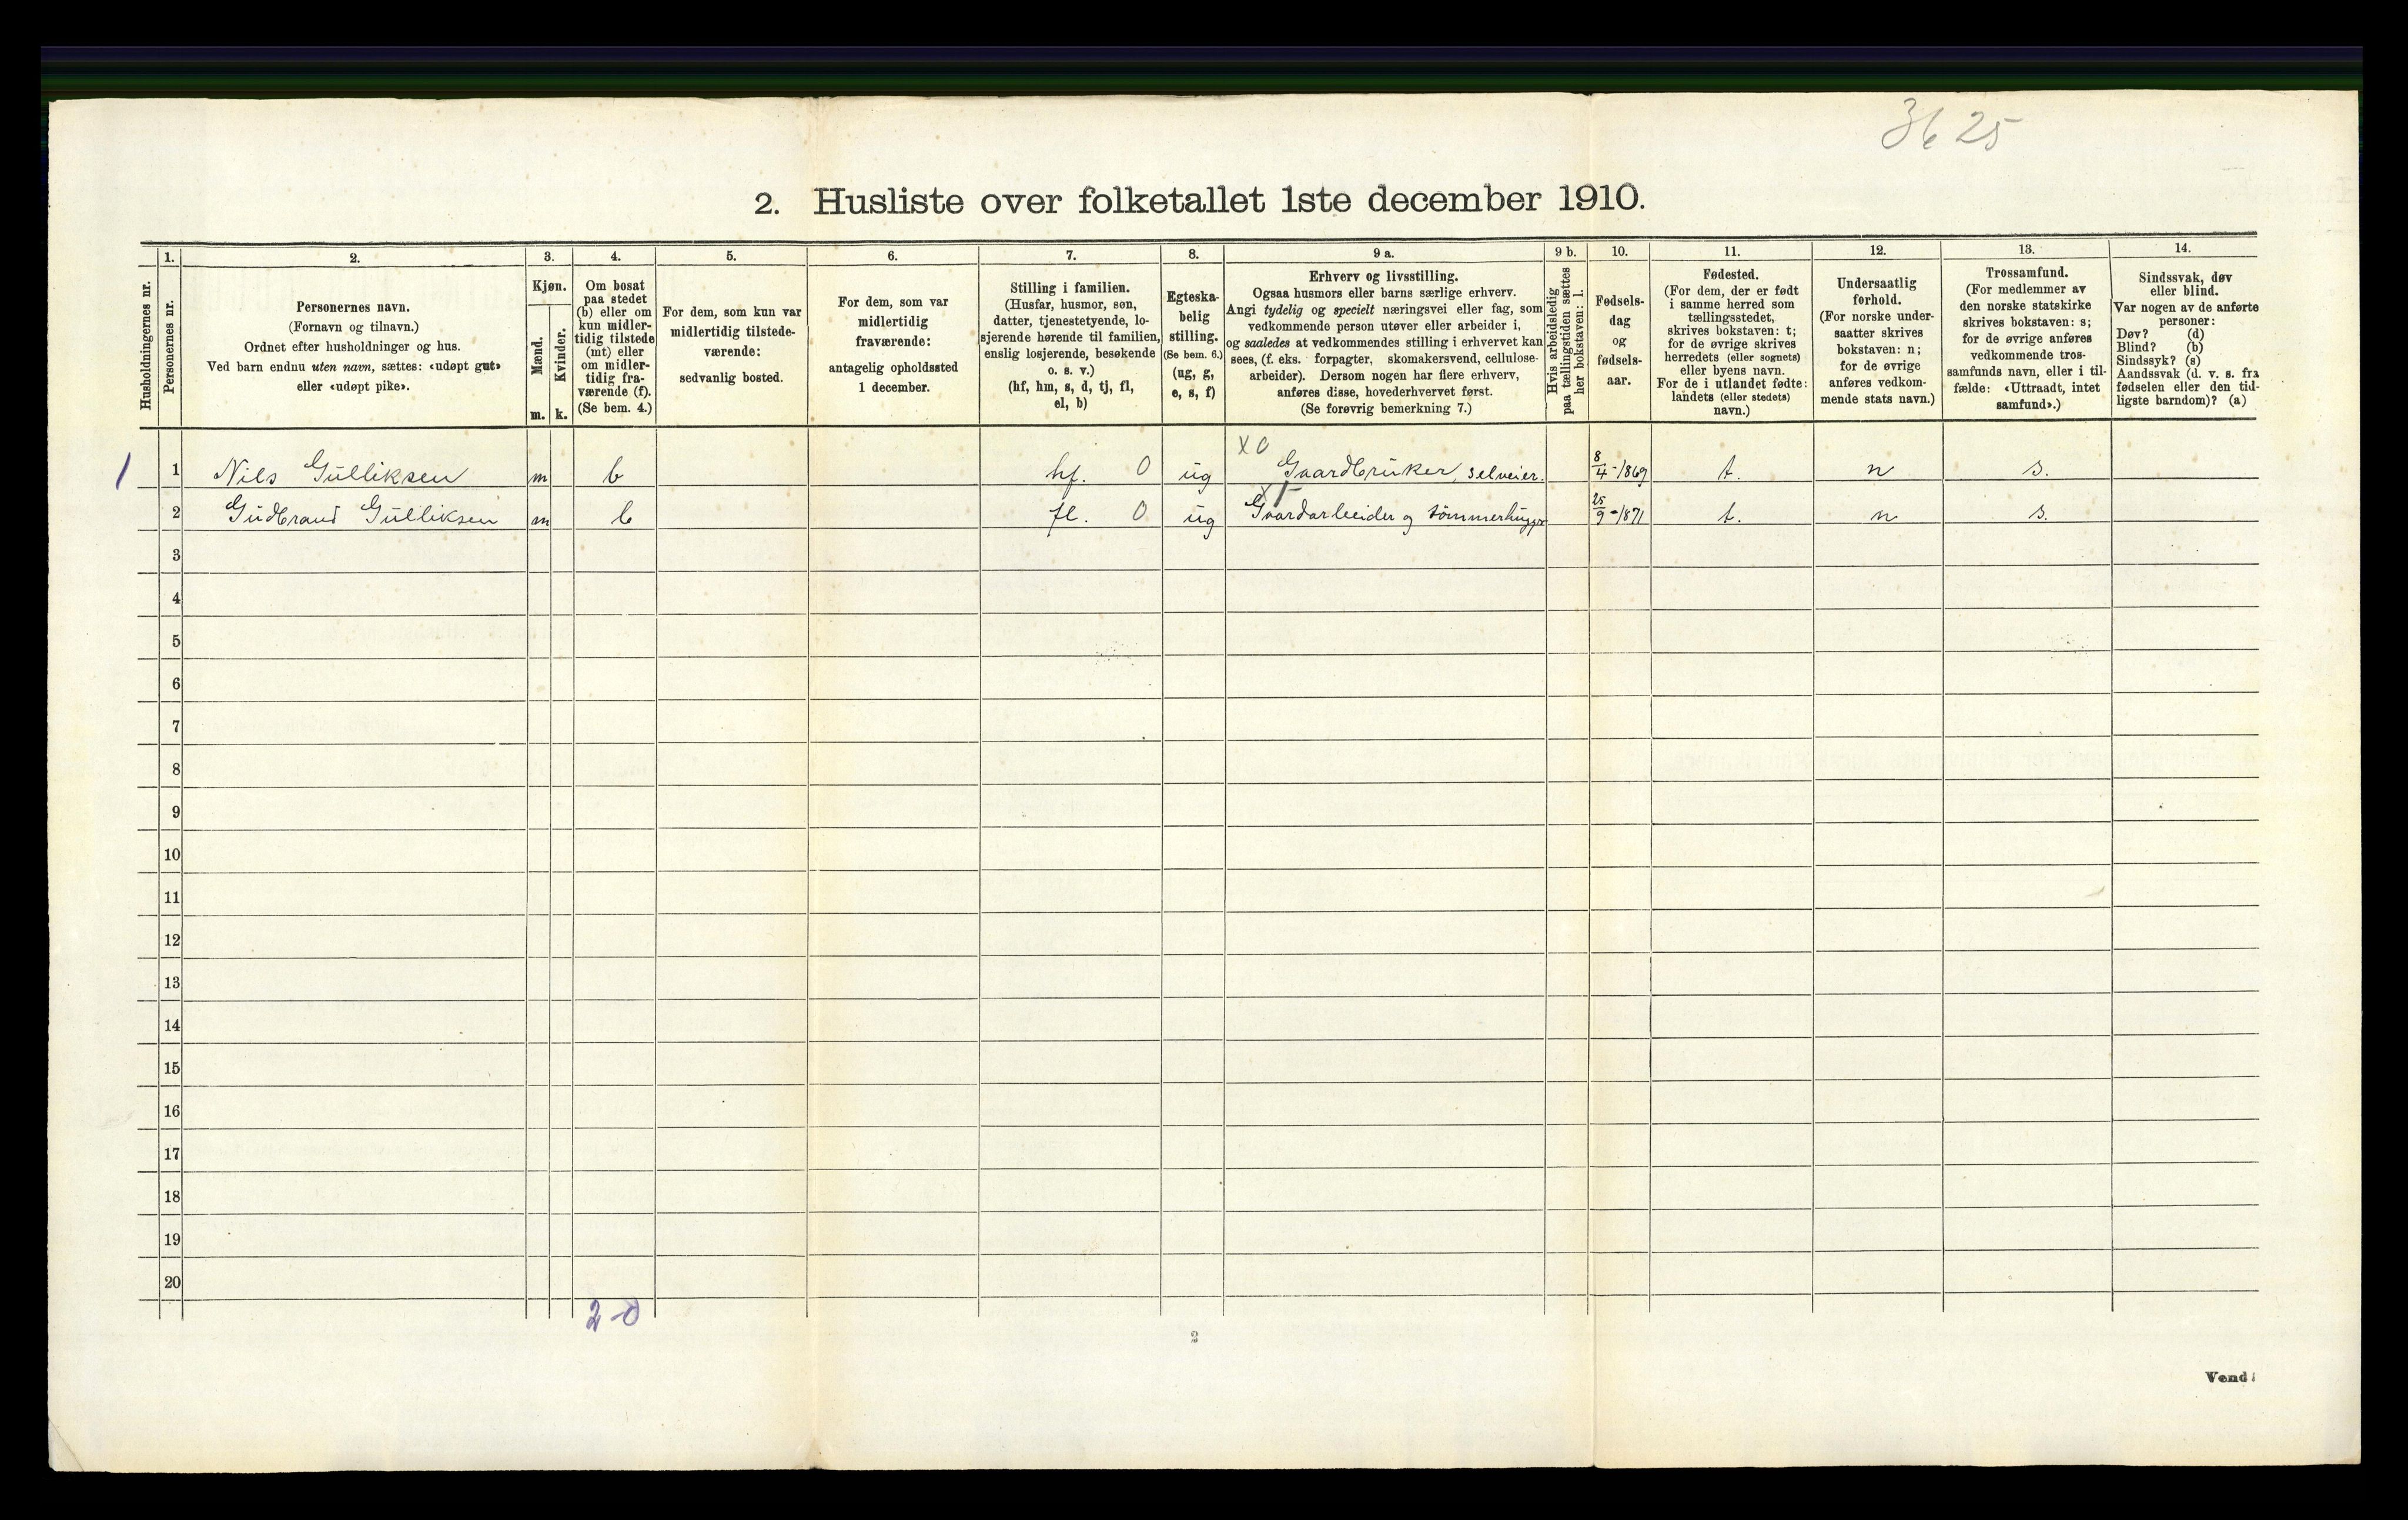 3625
2. Husliste over folketallet 1ste december 1910.
Husholdningernes nr.
1.
Personernes nr.
2.
Personernes navn.
(Fornavn og tilnavn.)
Ordnet efter husholdninger og hus.
Ved barn endnu uten navn, sættes: «udøpt gut»
eller «udøpt pike».
3.
Kjøn.
Mænd.
Kvinder.
m. k.
4.
Om bosat
paa stedet
(b) eller om
kun midler-
tidig tilstede
(mt) eller
om midler-
tidig fra-
værende (f).
(Se bem. 4.)
5.
For dem, som kun var
midlertidig tilstede-
værende:
sedvanlig bosted.
6.
For dem, som var
midlertidig
fraværende:
antagelig opholdssted
1 december.
7.
Stilling i familien.
(Husfar, husmor, søn,
datter, tjenestetyende, lo-
sjerende hørende til familien,
enslig losjerende, besøkende
o. s. v.)
(hf, hm, s, d, tj, fl,
el, b)
8.
Egteska-
belig
stilling.
(Se bem. 6.)
(ug, g,
e, s, f)
9 a.
Erhverv og livsstilling.
Ogsaa husmors eller barns særlige erhverv.
Angi tydelig og specielt næringsvei eller fag, som
vedkommende person utøver eller arbeider i,
og saaledes at vedkommendes stilling i erhvervet kan
sees, (f. eks. forpagter, skomakersvend, cellulose-
arbeider). Dersom nogen har flere erhverv,
anføres disse, hovederhvervet først.
(Se forøvrig bemerkning 7.)
9 b.
Hvis arbeidsledig
paa tællingstiden sættes
her bokstaven: l.
10.
Fødsels-
dag
og
fødsels-
aar.
11.
Fødested.
(For dem, der er født
i samme herred som
tællingsstedet,
skrives bokstaven: t;
for de øvrige skrives
herredets (eller sognets)
eller byens navn.
For de i utlandet fødte:
landets (eller stedets)
navn.)
12.
Undersaatlig
forhold.
(For norske under-
saatter skrives
bokstaven: n;
for de øvrige
anføres vedkom-
mende stats navn.)
13.
Trossamfund.
(For medlemmer av
den norske statskirke
skrives bokstaven: s;
for de øvrige anføres
vedkommende tros-
samfunds navn, eller i til-
fælde: «Uttraadt, intet
samfund».)
14.
Sindssvak, døv
eller blind.
Var nogen av de anførte
personer:
Døv? (d)
Blind? (b)
Sindssyk? (s)
Aandssvak (d. v. s. fra
fødselen eller den tid-
ligste barndom)? (a)
X 0
1 1 Nils Gulliksen m b hf. 0 ug Gaardbruker, selveier. 8/4-1869 t. n s.
2 Gudbrand Gulliksen m b fl. 0 ug Gaardarbeider og tömmerhugger 25/9-1871 t. n s.
3
4
5
6
7
8
9
10
11
12
13
14
15
16
17
18
19
20
2-0
2
Vend!